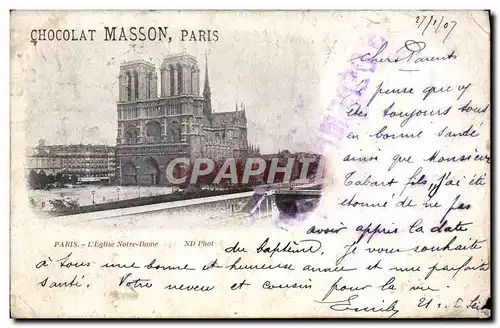 27/1/07
CHOCOLAT MASSON, PARIS
chers Parents
Je pense que vous
êtes toujours tous
en bonne santé
ainsi que Monsieur
Tabart fils, j'ai été
étonné de ne pas
avoir appris la date
PARIS. - L'Église Notre-Dame ND Phot
du Baptême, je vous souhaite
à tous une bonne et heureuse année et une parfaite
santé. Votre neveu et cousin pour la vie.
Emile
CPARAMA